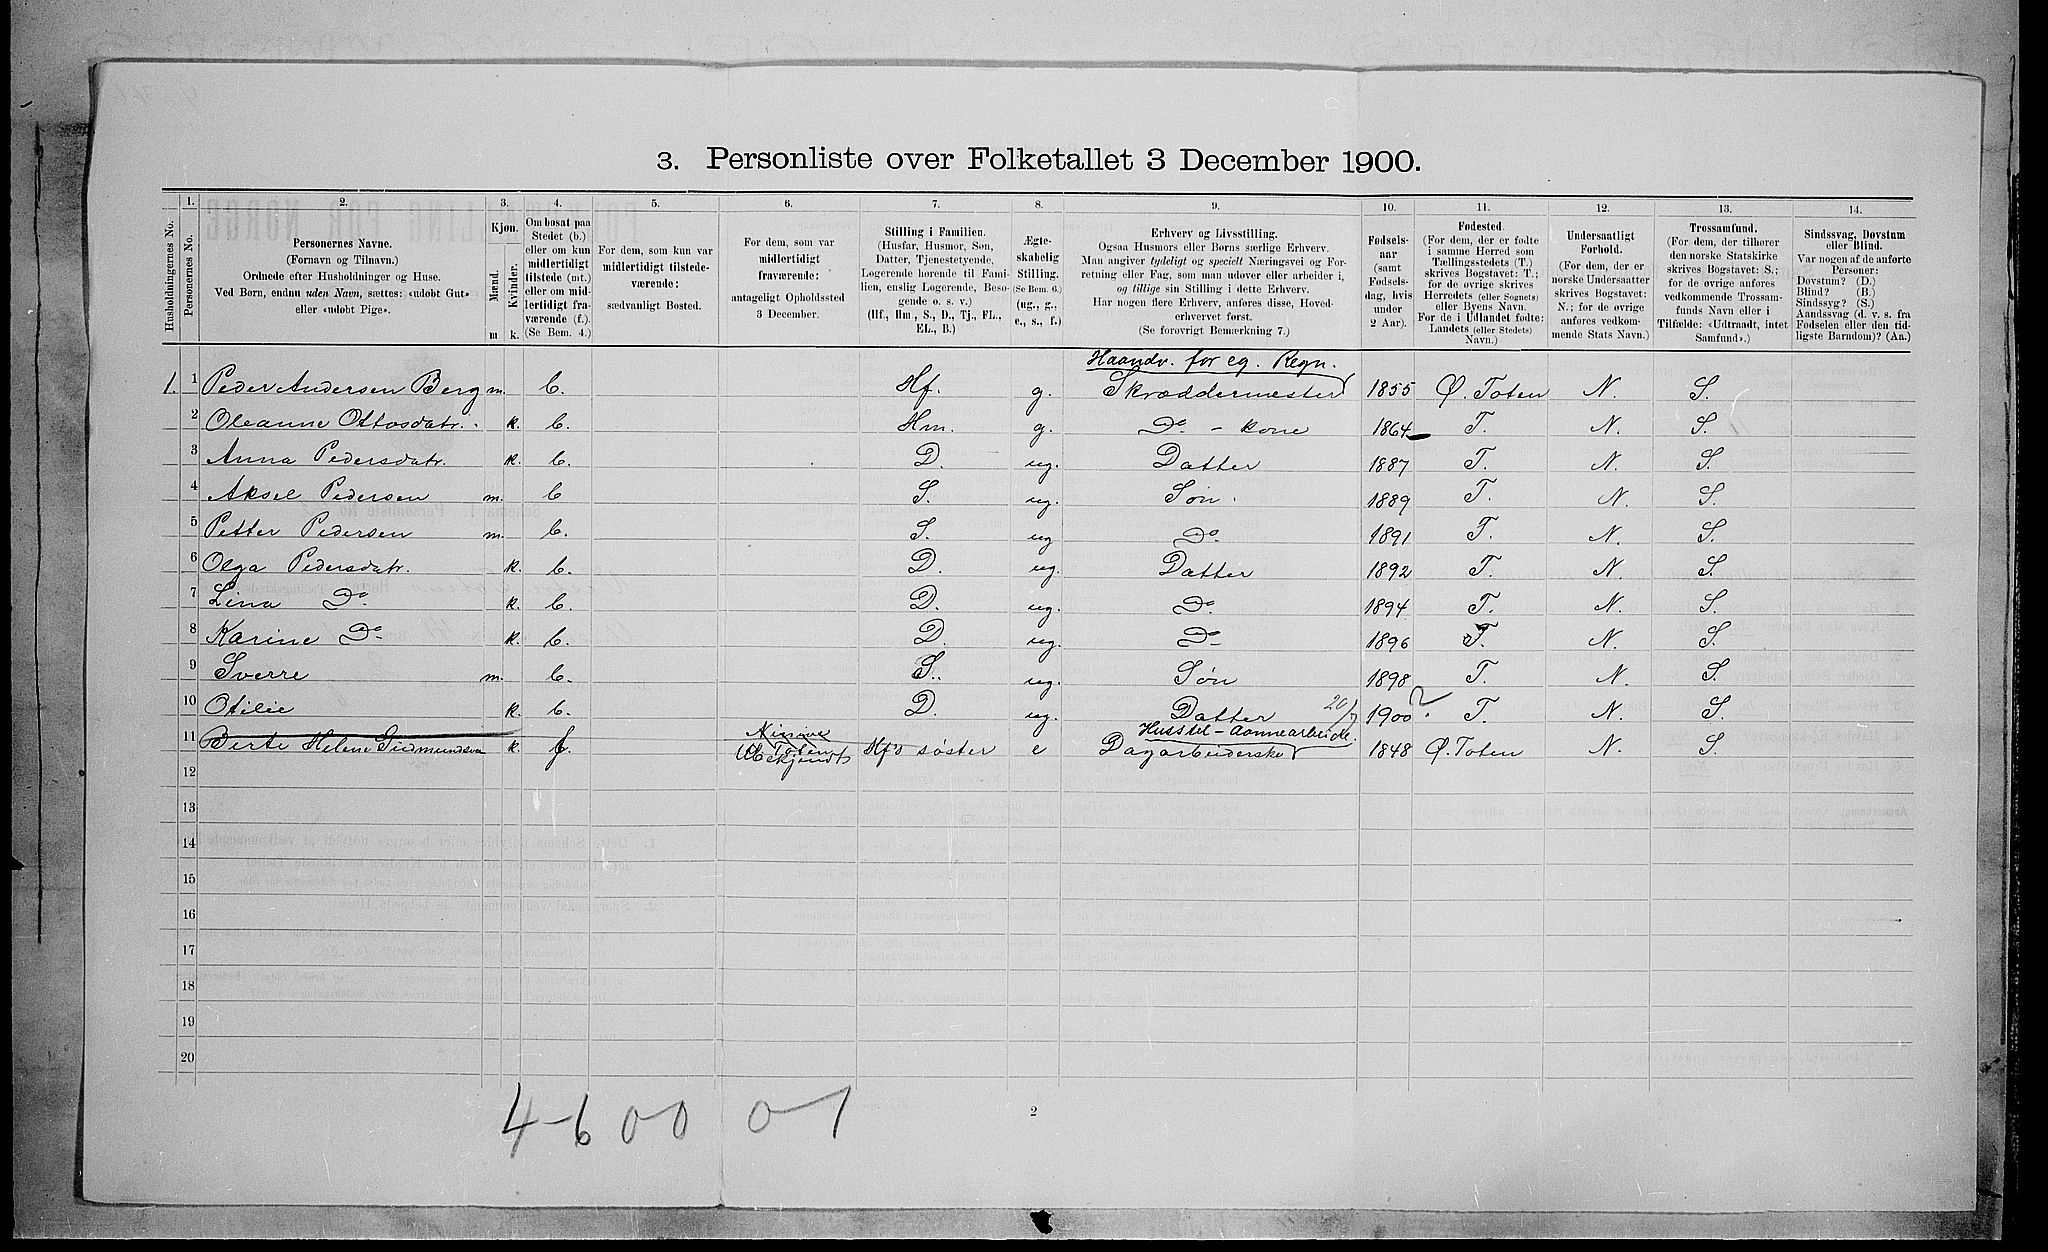 3. Personliste over Folketallet 3 December 1900.
1. 2. 3. 4. 5. 6. 7. 8. 9. 10. 11. 12. 13. 14.
Husholdningernes No.
Personernes No.
Personernes Navne.
(Fornavn og Tilnavn.)
Ordnede efter Husholdninger og Huse.
Ved Børn, endnu uden Navn, sættes: «udøbt Gut»
eller «udøbt Pige».
Kjøn.
Mænd.
Kvinder.
m k.
Om bosat paa
Stedet (b.)
eller om kun
midlertidigt
tilstede (mt.)
eller om mid-
lertidigt fra-
værende (f.)
(Se Bem. 4.)
For dem, som kun var
midlertidigt tilstede-
værende:
sædvanligt Bosted.
For dem, som var
midlertidigt
fraværende:
antageligt Opholdssted
3 December.
Stilling i Familien.
(Husfar, Husmor, Søn,
Datter, Tjenestetyende,
Logerende hørende til Fami-
lien, enslig Logerende, Besø-
gende o. s. v.)
(Hf., Hm., S., D., Tj., FL.,
EL., B.)
Ægte-
skabelig
Stilling.
(Se Bem. 6.)
(ug., g.,
e., s., f.)
Erhverv og Livsstilling.
Ogsaa Husmors eller Børns særlige Erhverv.
Man angiver tydeligt og specielt Næringsvei og For-
retning eller Fag, som man udøver eller arbeider i,
og tillige sin Stilling i dette Erhverv.
Har nogen flere Erhverv, anføres disse, Hoved-
erhvervet først.
(Se forøvrigt Bemærkning 7.)
Fødsels-
aar
(samt
Fødsels-
dag, hvis
under
2 Aar).
Fødested.
(For dem, der er fødte
i samme Herred som
Tællingsstedets (T.)
skrives Bogstavet: T.;
for de øvrige skrives
Herredets (eller Sognets)
eller Byens Navn.
For de i Udlandet fødte:
Landets (eller Stedets)
Navn.)
Undersaatligt
Forhold.
(For dem, der er
norske Undersaatter
skrives Bogstavet:
N.; for de øvrige
anføres vedkom-
mende Stats Navn.)
Trossamfund.
(For dem, der tilhører
den norske Statskirke
skrives Bogstavet: S.;
for de øvrige anføres
vedkommende Trossam-
funds Navn eller i
Tilfælde: «Udtraadt, intet
Samfund».)
Sindssvag, Døvstum
eller Blind.
Var nogen af de anførte
Personer:
Døvstum? (D.)
Blind? (B.)
Sindssyg? (S.)
Aandssvag (d. v. s. fra
Fødselen eller den tid-
ligste Barndom)? (Aa.)
Haandv. for eg. Regn.
1. 1 Peder Andersen Berg m. b. Hf. g. Skræddermester 1855 Ø. Toten N. S.
2 Oleanne Ottosdatr. k. b. Hm. g. Do - kone 1864 T. N. S.
3 Anna Pedersdatr. k. b. D. ug. Datter 1887 T. N. S.
4 Aksel Pedersen m. b S. ug. Søn. 1889 T. N. S.
5 Petter Pedersen m. b. S. ug Do 1891 T. N. S.
6 Olga Pedersdatr. k. b. D. ug. Datter 1892 T. N. S.
7 Lina Do k. b. D. ug. Do 1894 T. N. S.
8 Karine Do k. b. D. ug. Do 1896 T. N. S.
9 Sverre m. b. S. ug. Søn 1898 T. N. S.
10 Otilie k. b. D. ug. Datter 20/7 1900 ? T. N. S.
11 Berte Helene Gudmundsen k. f. Ubekjendt Hfs søster e Dagarbeiderske 1848 Ø. Toten N. S.
12
13
14
15
16
17
18
19
20
4-6 0 0 0-1
2